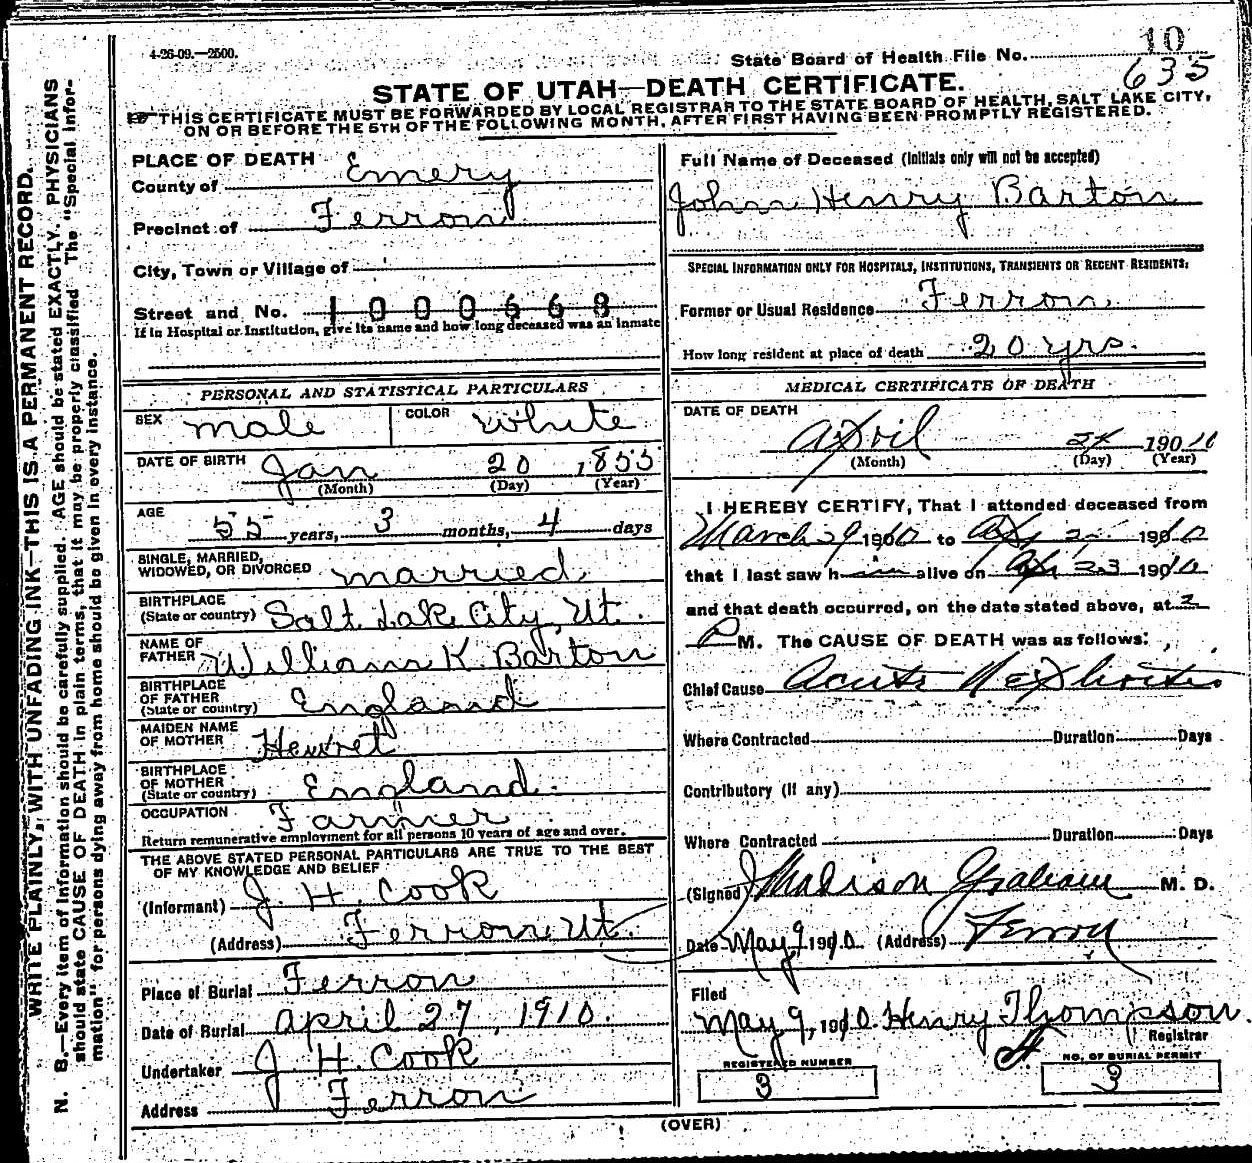 4-26-09.—2500.
State Board of Health File No. 10
635
STATE OF UTAH—DEATH CERTIFICATE.
THIS CERTIFICATE MUST BE FORWARDED BY LOCAL REGISTRAR TO THE STATE BOARD OF HEALTH, SALT LAKE CITY,
ON OR BEFORE THE 5TH OF THE FOLLOWING MONTH, AFTER FIRST HAVING BEEN PROMPTLY REGISTERED.
WRITE PLAINLY, WITH UNFADING INK—THIS IS A PERMANENT RECORD.
N. B.—Every item of Information should be carefully supplied. AGE should be stated EXACTLY. PHYSICIANS
should state CAUSE OF DEATH in plain terms, that it may be properly classified The "Special Infor-
mation" for persons dying away from home should be given in every instance.
PLACE OF DEATH
County of Emery
Precinct of Ferron
City, Town or Village of
Street and No. 1000668
If in Hospital or Institution, give its name and how long deceased was an inmate
PERSONAL AND STATISTICAL PARTICULARS
SEX male COLOR White
DATE OF BIRTH Jan 20, 1855
(Month) (Day) (Year)
AGE
55 years, 3 months, 4 days
SINGLE, MARRIED,
WIDOWED, OR DIVORCED married
BIRTHPLACE
(State or country) Salt Lake City, Ut.
NAME OF
FATHER William K. Barton
BIRTHPLACE
OF FATHER
(State or country) England
MAIDEN NAME
OF MOTHER
BIRTHPLACE
OF MOTHER
(State or country) England.
OCCUPATION Farmer
Return remunerative employment for all persons 10 years of age and over.
THE ABOVE STATED PERSONAL PARTICULARS ARE TRUE TO THE BEST
OF MY KNOWLEDGE AND BELIEF
(Informant) J. H. Cook
(Address) Ferron Ut.
Place of Burial Ferron
Date of Burial April 27, 1910.
Undertaker J H. Cook
Address Ferron
Full Name of Deceased (Initials only will not be accepted)
John Henry Barton
SPECIAL INFORMATION ONLY FOR HOSPITALS, INSTITUTIONS, TRANSIENTS OR RECENT RESIDENTS:
Former or Usual Residence Ferron
How long resident at place of death 20 yrs.
MEDICAL CERTIFICATE OF DEATH
DATE OF DEATH
April 24 1910
(Month) (Day) (Year)
I HEREBY CERTIFY, That I attended deceased from
March 29 1910 to 1910
that I last saw him alive on Apr 23 1910
and that death occurred, on the date stated above, at 2
P M. The CAUSE OF DEATH was as follows:
Chief Cause Acute
Where Contracted Duration Days
Contributory (if any)
Where Contracted Duration Days
(Signed) J Madison Graham M. D.
Date May 9 1910 (Address) Ferron
Filed
May 9, 1910. Henry Thompson.
Registrar
REGISTERED NUMBER
3
NO. OF BURIAL PERMIT
3
(OVER)